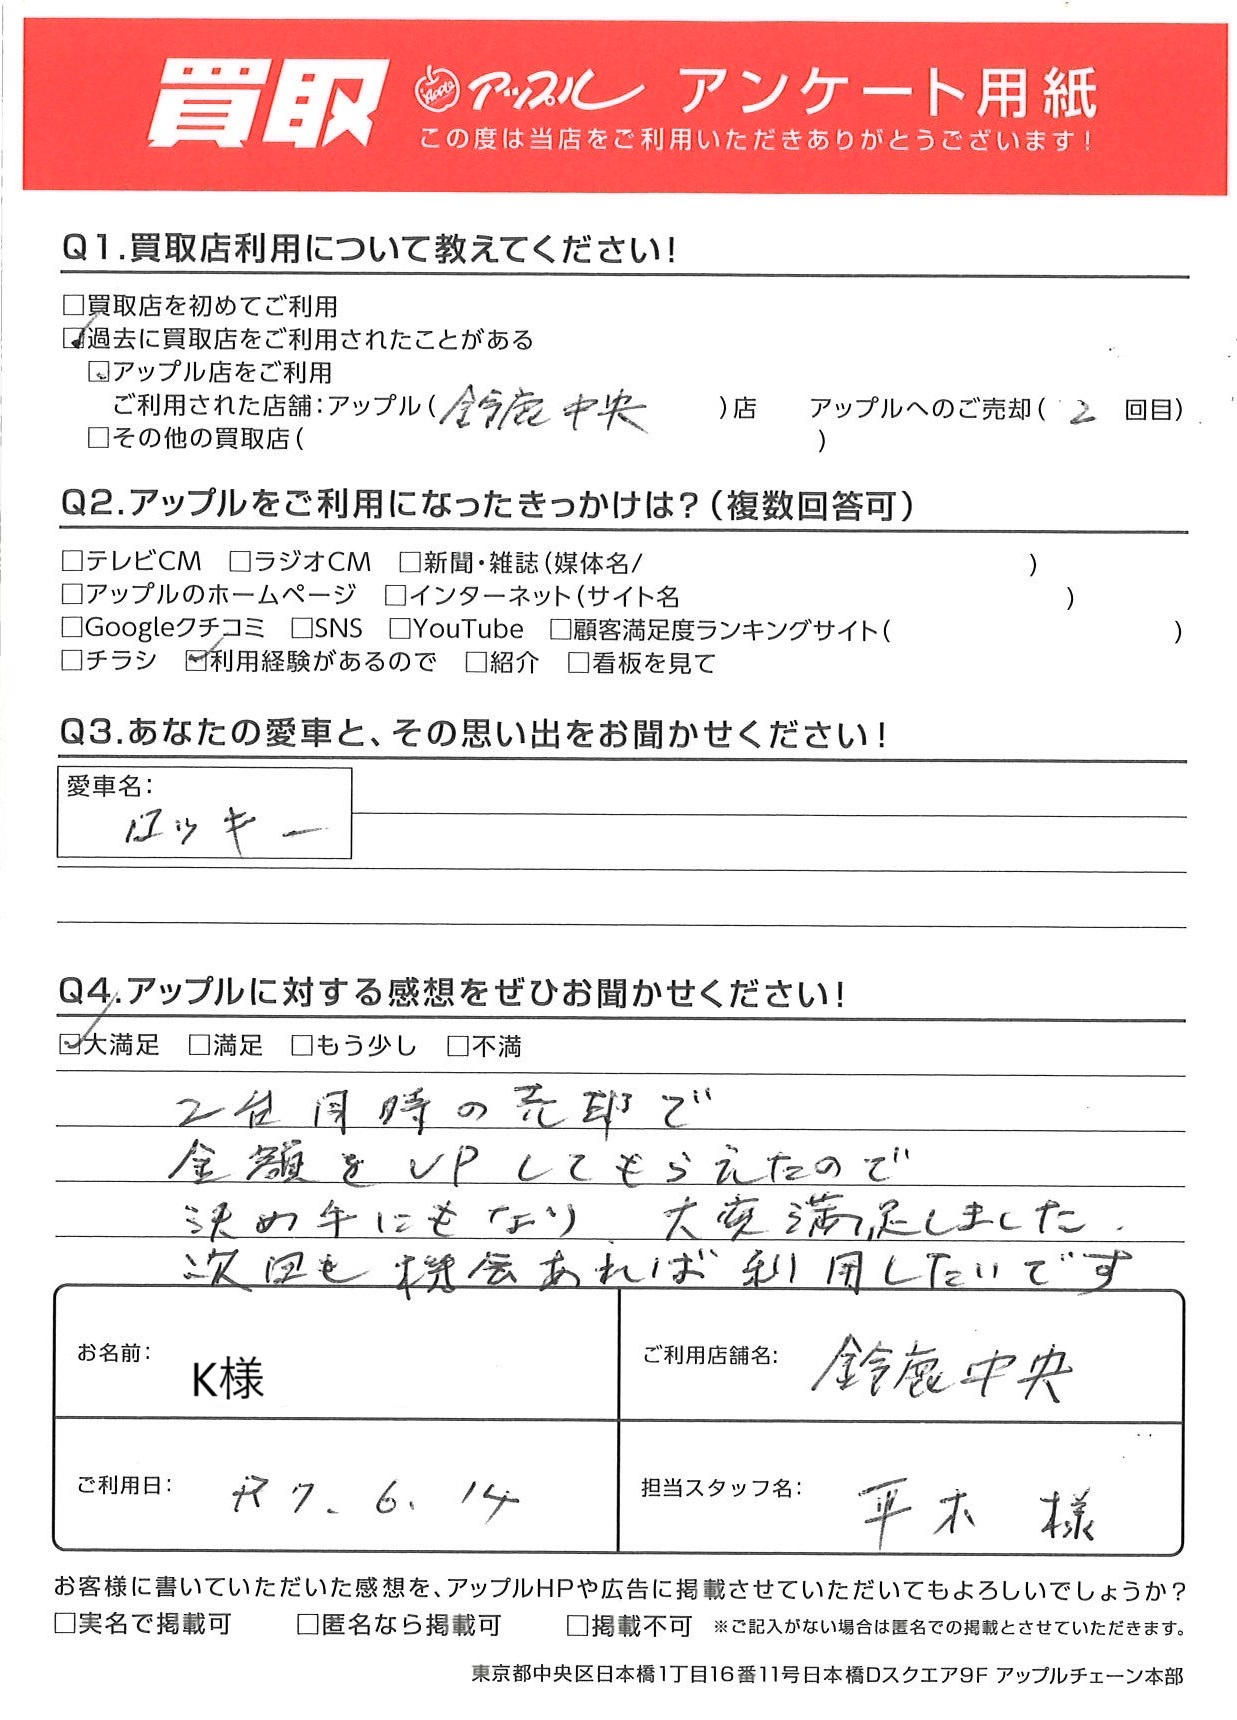 買取 Apple アップル アンケート用紙
この度は当店をご利用いただきありがとうございます!
Q1.買取店利用について教えてください!
□買取店を初めてご利用
☑過去に買取店をご利用されたことがある
☑アップル店をご利用
ご利用された店舗:アップル(鈴鹿中央)店 アップルへのご売却(2回目)
□その他の買取店( )
Q2.アップルをご利用になったきっかけは?(複数回答可)
□テレビCM □ラジオCM □新聞・雑誌(媒体名/ )
□アップルのホームページ □インターネット(サイト名 )
□Googleクチコミ □SNS □YouTube □顧客満足度ランキングサイト( )
□チラシ ☑利用経験があるので □紹介 □看板を見て
Q3.あなたの愛車と、その思い出をお聞かせください!
愛車名:
ロッキー
Q4.アップルに対する感想をぜひお聞かせください!
☑大満足 □満足 □もう少し □不満
2台同時の売却で
金額をUPしてもらえたので
決め手にもなり 大変満足しました.
次回も機会あれば利用したいです
お名前: K様 ご利用店舗名: 鈴鹿中央
ご利用日: R7.6.14 担当スタッフ名: 平木 様
お客様に書いていただいた感想を、アップルHPや広告に掲載させていただいてもよろしいでしょうか?
□実名で掲載可 □匿名なら掲載可 □掲載不可 ※ご記入がない場合は匿名での掲載とさせていただきます。
東京都中央区日本橋1丁目16番11号日本橋Dスクエア9F アップルチェーン本部